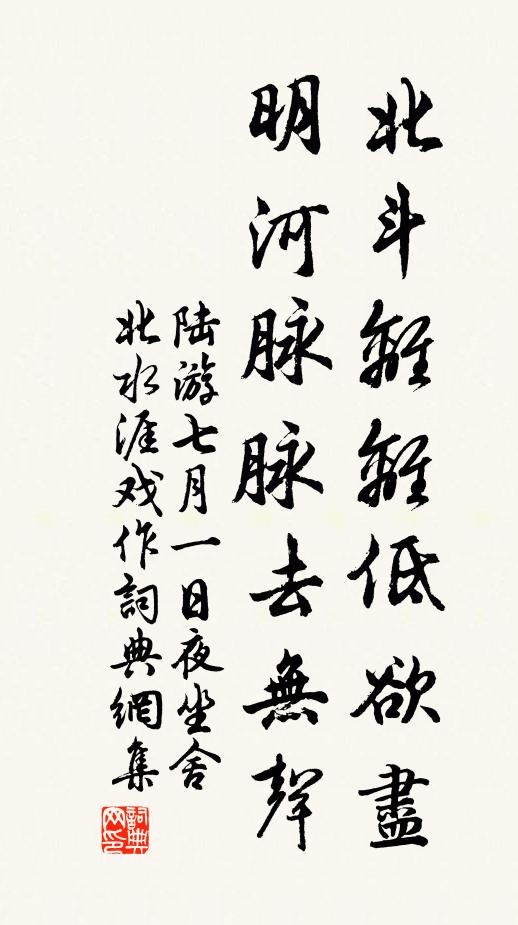 北斗離離低欲盡
明河脉脉去無聲
陆游七月一日夜坐舍
北水涯戏作詞典網集
詞典
网印